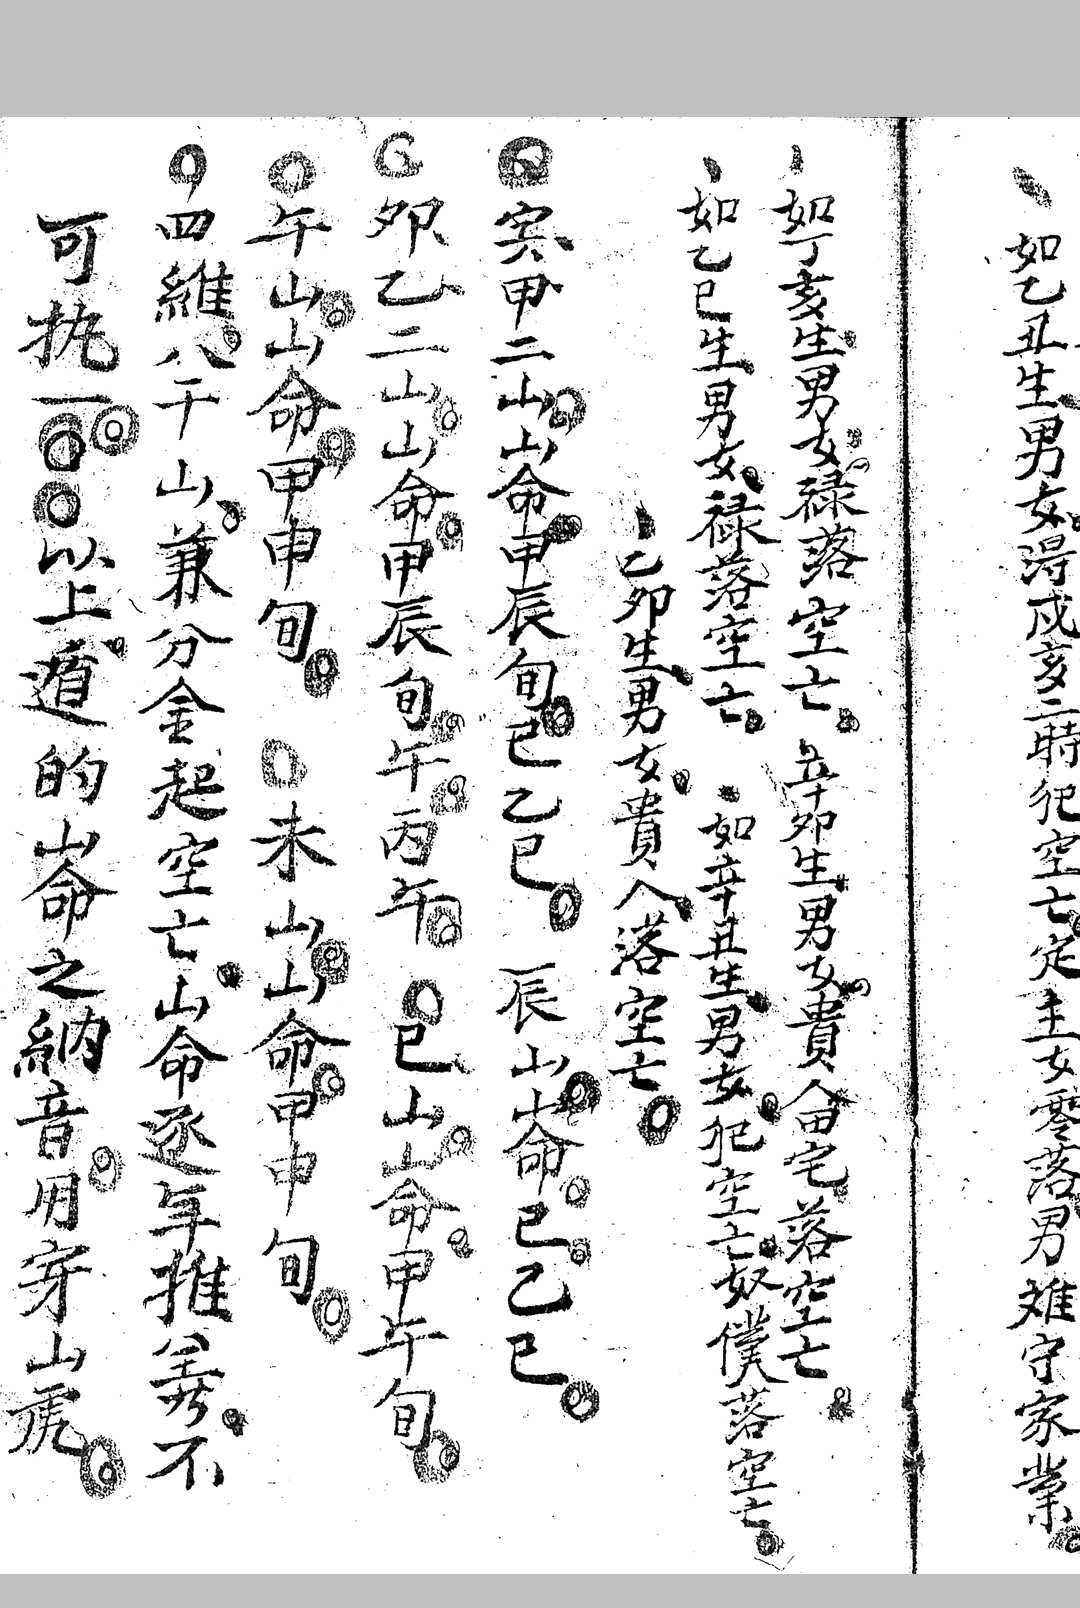 如乙丑生男女得戍亥二時犯空亡定主女零落男难守家業
如丁亥生男女禄落空亡 辛卯生男女貴人田宅落空亡
如乙巳生男女禄落空亡 如辛丑生男女犯空亡奴僕落空亡
乙卯生男女貴人落空亡
寅甲二山山命甲辰旬巳乙巳 辰山山命巳乙巳
卯乙二山山命甲辰旬午丙午 巳山山命甲午旬
午山山命甲申旬 未山山命甲申旬
四維八干山兼分金起空亡山命逐年推筭不
可执一 以上遁的山命之納音用穿山虎